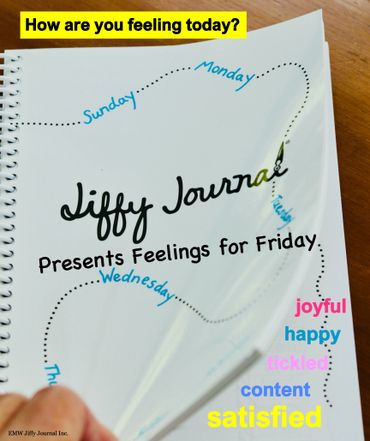 How are you feeling today?
Sunday
Monday
Jiffy Journal
Tuesday
Presents Feelings for Friday.
Wednesday
Thu
joyful
happy
tickled
content
satisfied
EMW Jiffy Journal Inc.